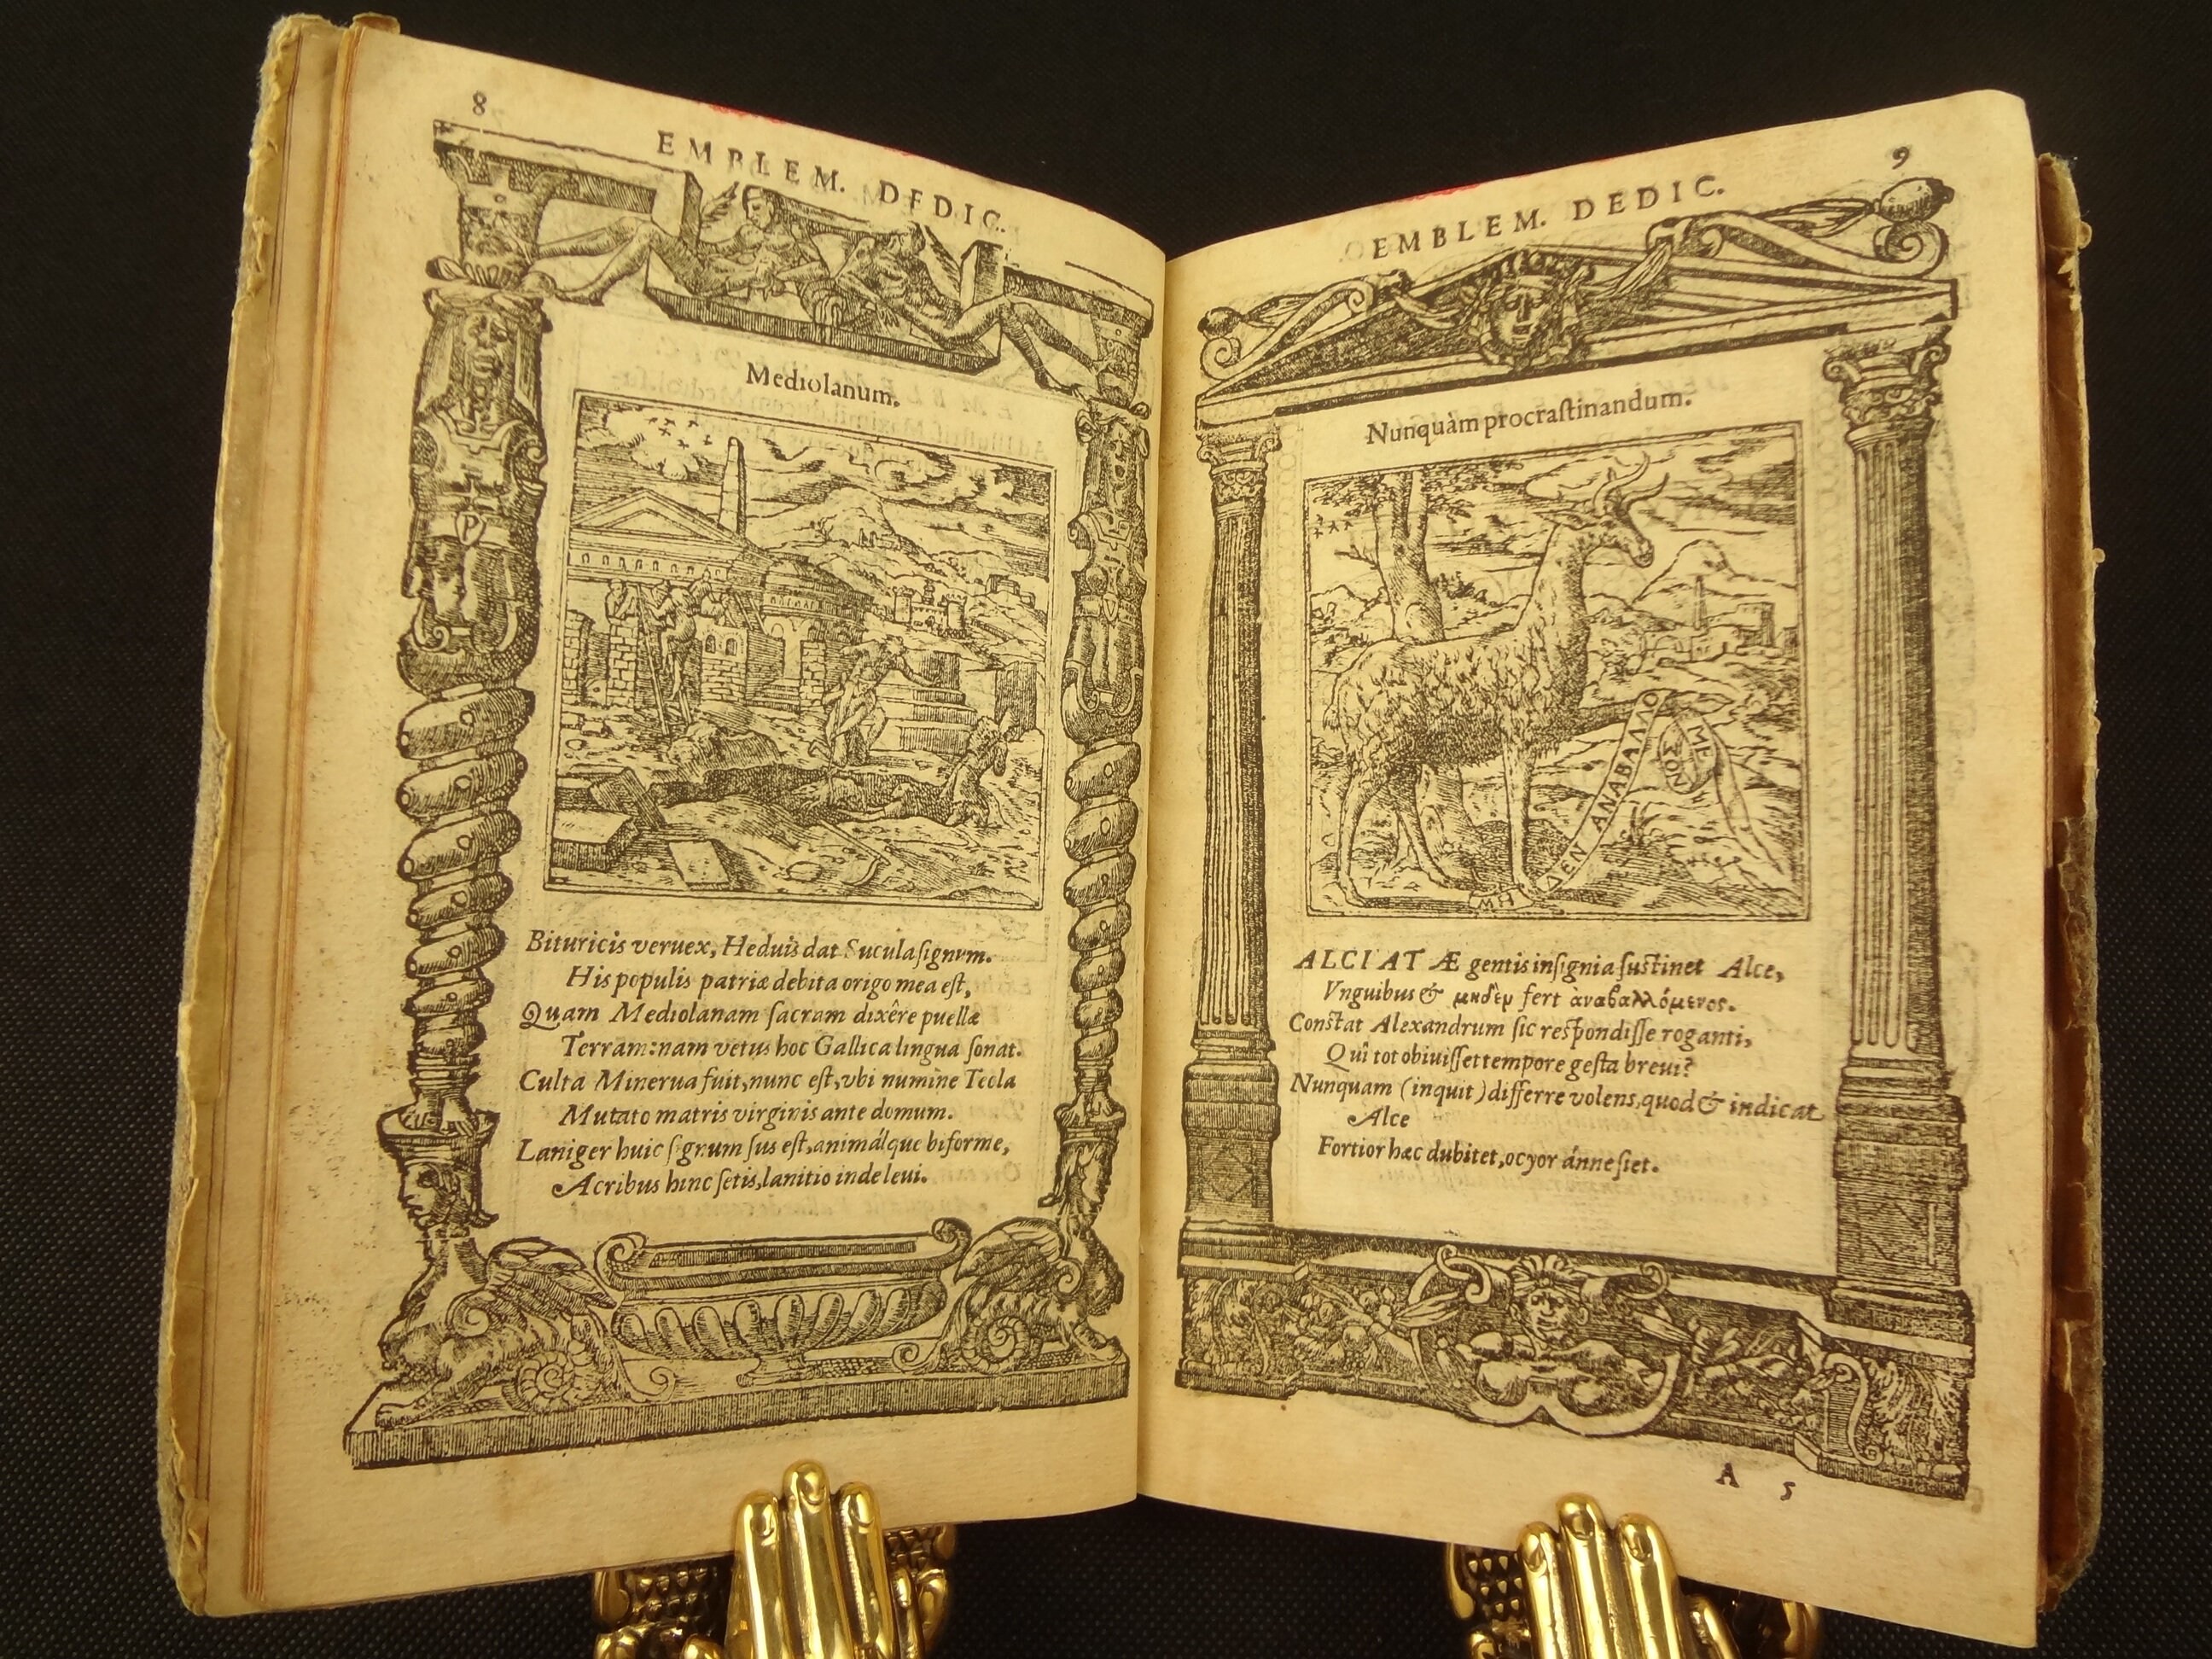 8
EMBLEM. DEDIC.
Mediolanum.
Bituricis veruex, Heduis dat Sucula signum.
His populis patriæ debita origo mea est,
Quam Mediolanam sacram dixêre puellæ
Terram: nam vetus hoc Gallica lingua sonat.
Culta Minerua fuit, nunc est, vbi numine Tecla
Mutato matris virginis ante domum.
Laniger huic signum sus est, animálque biforme,
Acribus hinc setis, lanitio inde leui.
9
EMBLEM. DEDIC.
Nunquàm procrastinandum.
ΜΗ
ΔΕΝ ΑΝΑΒΑΛΛΟ
ΜΕ
ΝΟΣ
ALCIATÆ gentis insignia sustinet Alce,
Vnguibus & μηδὲν fert ἀναβαλλόμενος.
Constat Alexandrum sic respondisse roganti,
Quî tot obiuisset tempore gesta breui?
Nunquam (inquit) differre volens, quod & indicat
Alce
Fortior hæc dubitet, ocyor ánne siet.
A 5